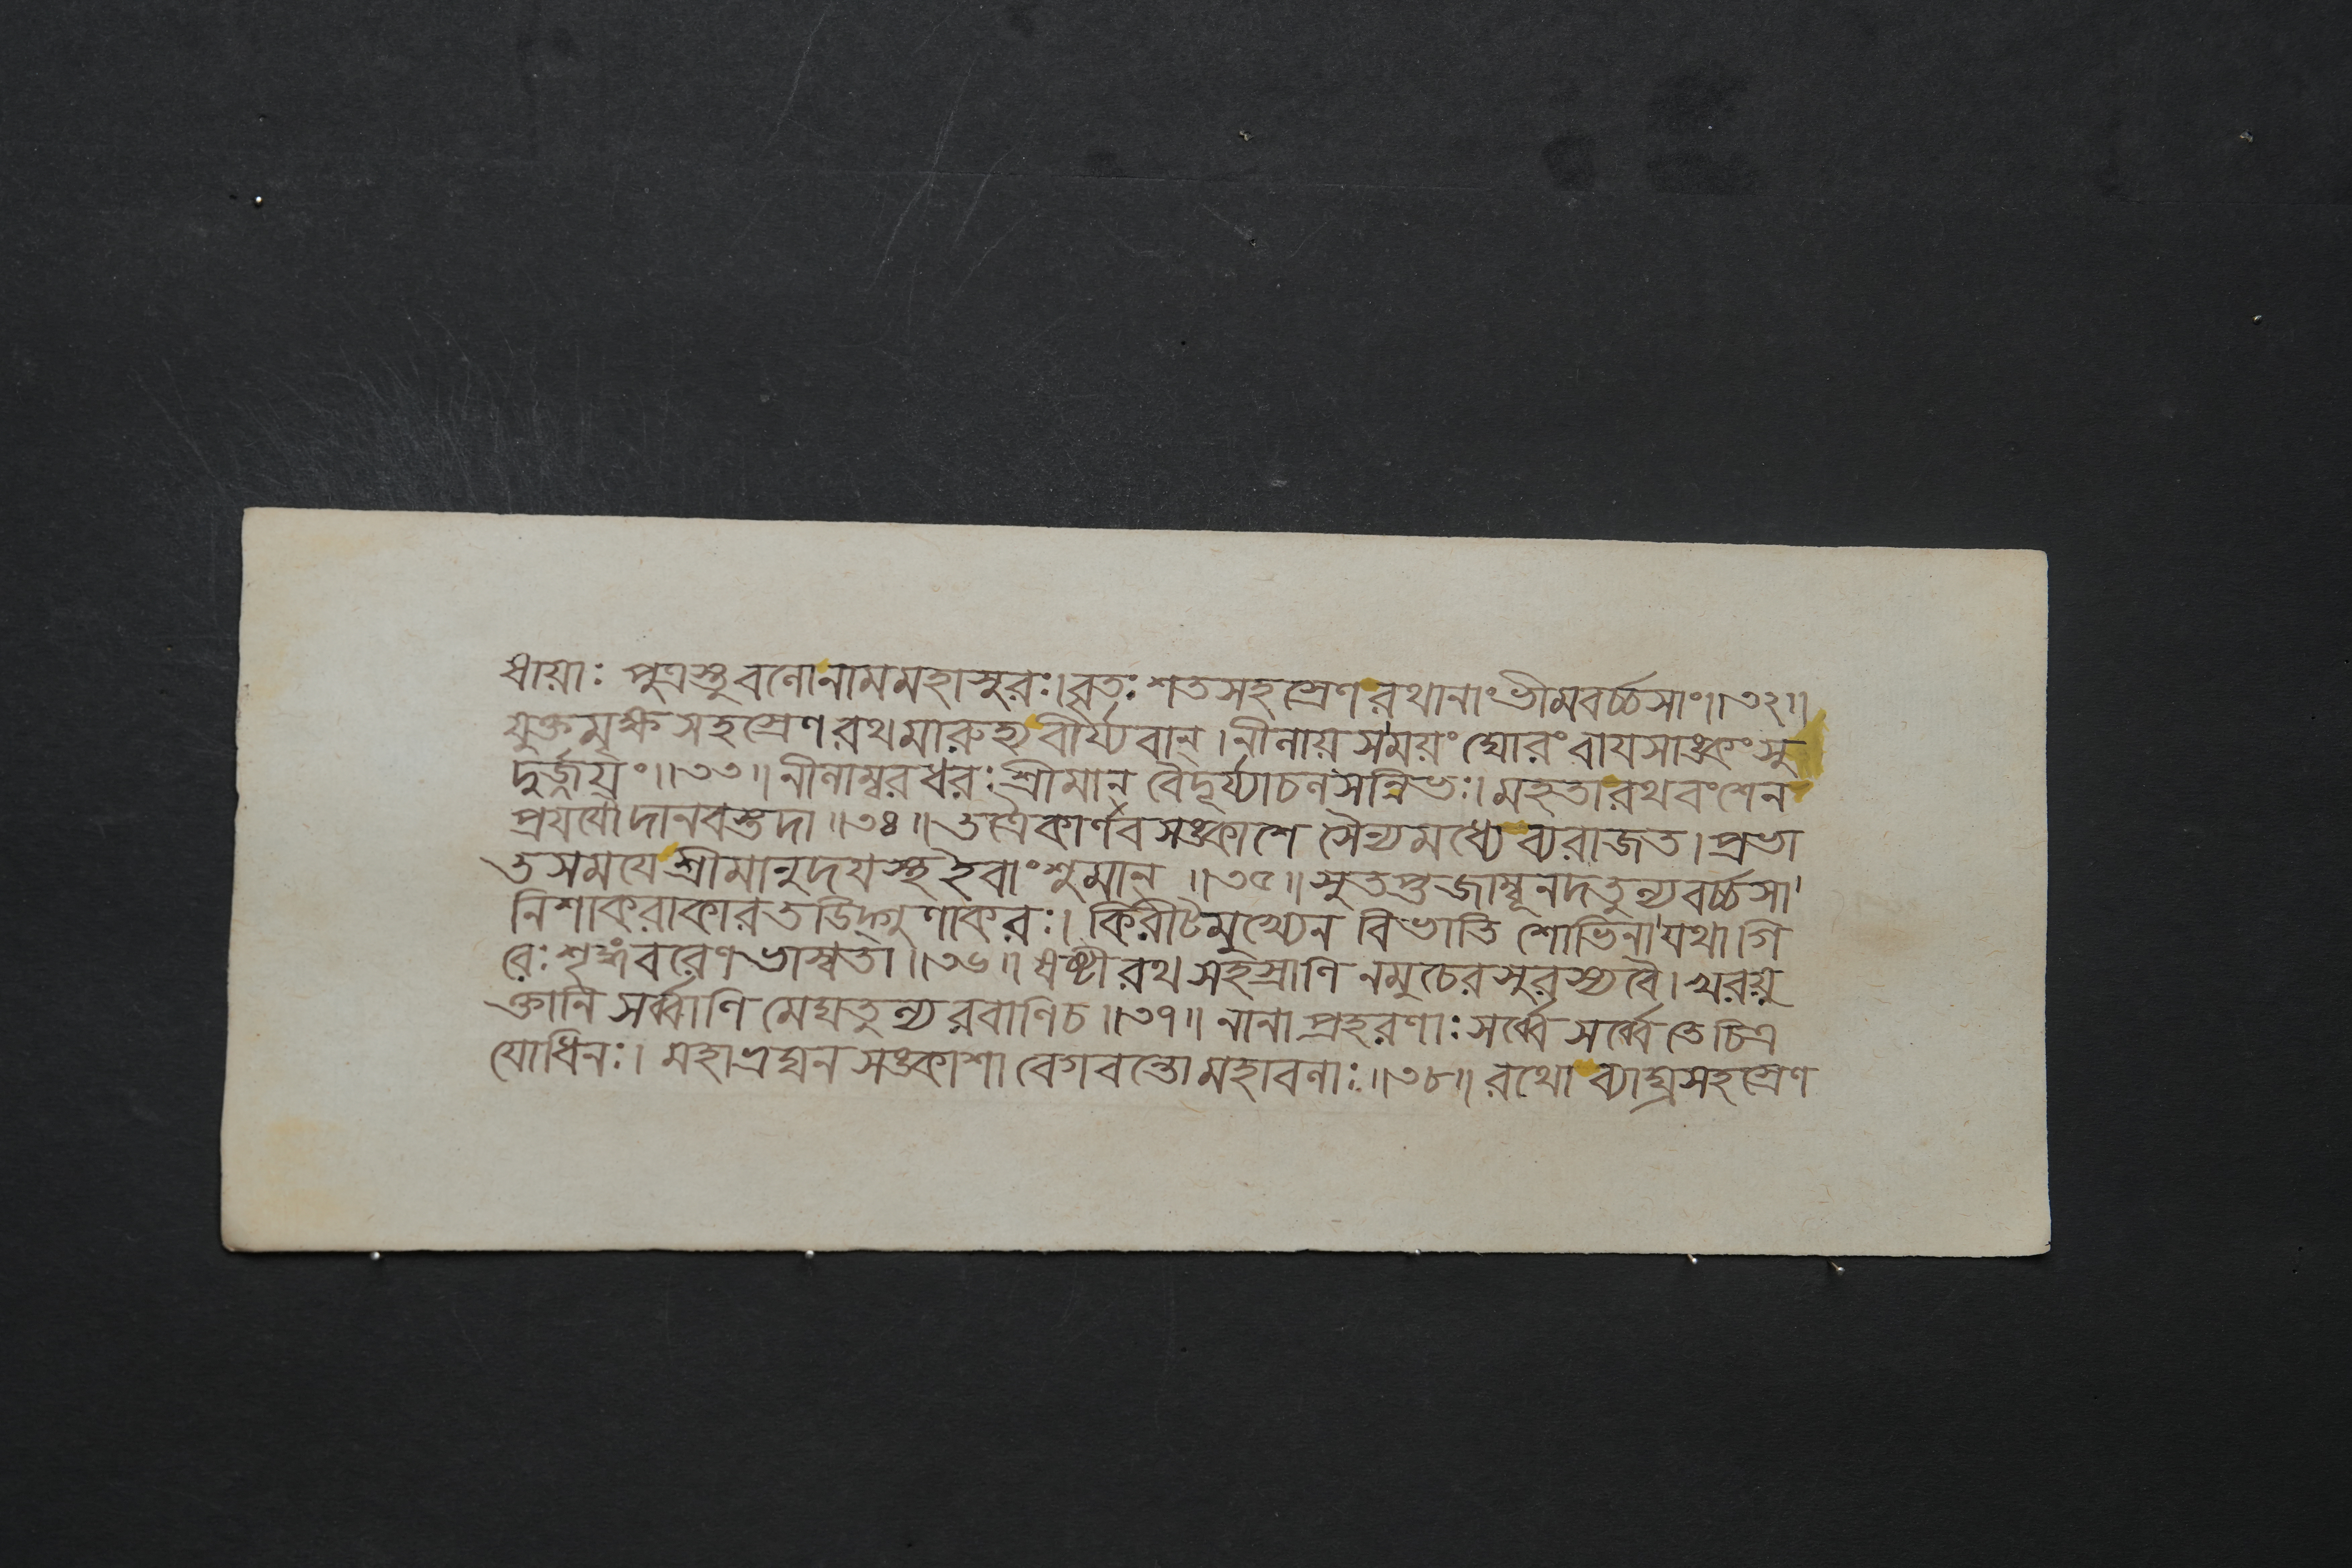 ধায়াঃ পুত্রস্তু বলোনামমহাসুরঃ। বৃতঃ শতসহস্রেণ রথানাং ভীমবর্চ্চসাং॥৩২॥
যুক্তমৃক্ষসহস্রেণ রথমারুহ্য বীর্য্যবান্। নীলায়সময়ং ঘোরং বায়সাঙ্কং সু
দুর্জ্জয়ং॥৩৩॥ নীলাম্বরধরঃ শ্রীমান্ বৈদূর্য্যাচলসন্নিভঃ। মহতা রথবংশেন
প্রযযৌ দানবস্তদা॥৩৪॥ তত্রৈকার্ণবসঙ্কাশে সৈন্যমধ্যে ব্যরাজত। প্রভা
তসময়ে শ্রীমানুদয়স্থ ইবাংশুমান্॥৩৫॥ সুতপ্তজাম্বূনদতুল্যবর্চ্চসা
নিশাকরাকারতডিদ্গুণাকরঃ। কিরীটমুখ্যেন বিভাতি শোভিনা যথা গি
রেঃ শৃঙ্গবরেণ ভাস্বতা॥৩৬॥ ষষ্টী রথসহস্রাণি নমুচেরসুরস্য বৈ। খরযু
ক্তানি সর্ব্বাণি মেঘতুল্যরবাণি চ॥৩৭॥ নানাপ্রহরণাঃ সর্ব্বে সর্ব্বে তে চিত্র
যোধিনঃ। মহাভ্রঘনসঙ্কাশা বেগবন্তো মহাবলাঃ॥৩৮॥ রথো ব্যাঘ্রসহস্রেণ